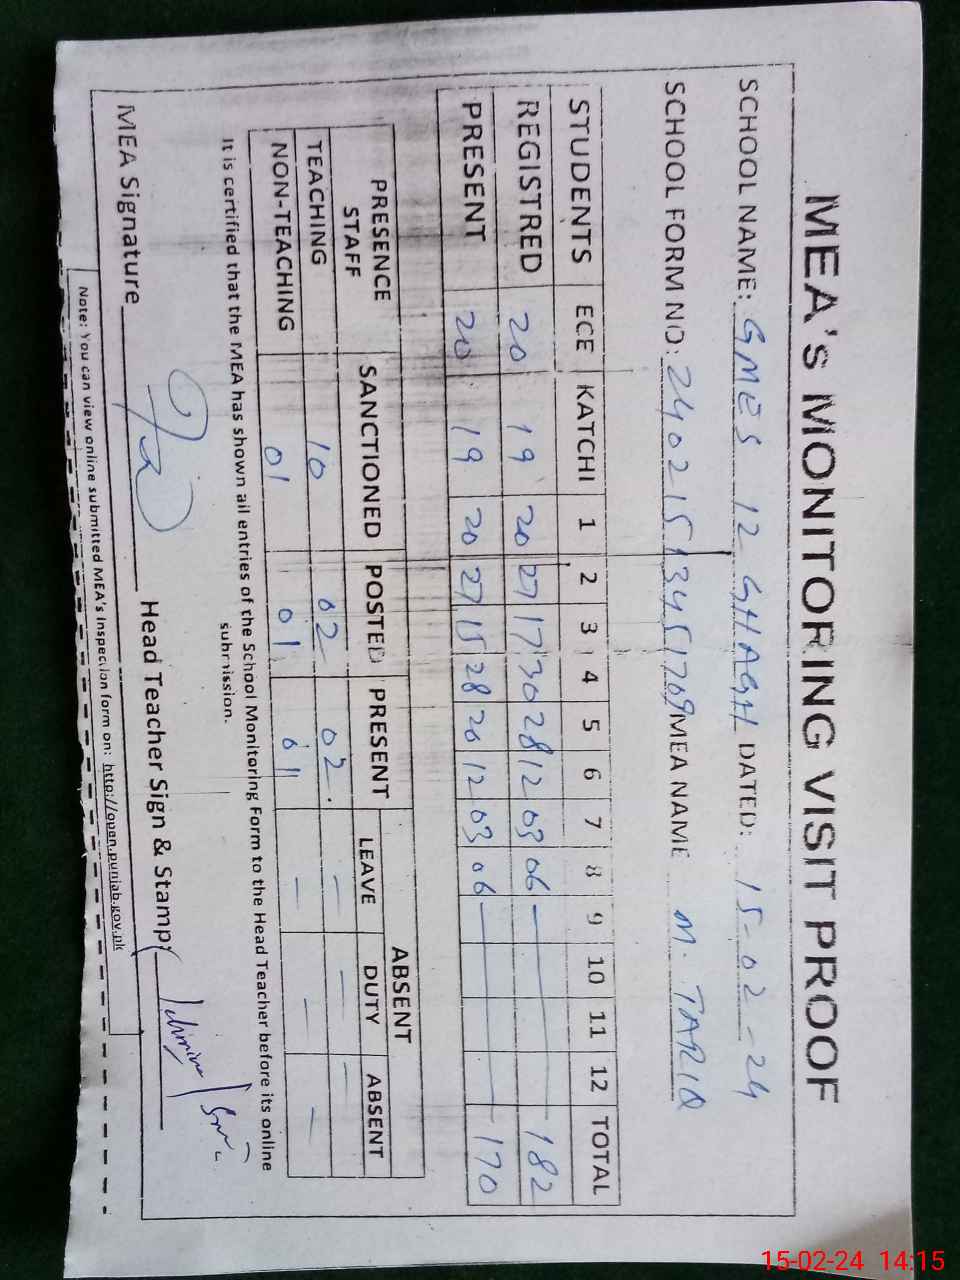 MEA's MONITORING VISIT PROOF
SCHOOL NAME: GMES 12 GHAGH DATED: 15-02-24
SCHOOL FORM NO: 24021513451709 MEA NAME M. TARIQ
STUDENTS ECE KATCHI 1 2 3 4 5 6 7 8 9 10 11 12 TOTAL
REGISTRED 20 19 20 27 17 30 28 12 03 06 — 182
PRESENT 20 19 20 27 15 28 20 12 03 06 — 170
PRESENCE STAFF SANCTIONED POSTED PRESENT ABSENT
LEAVE DUTY ABSENT
TEACHING 10 02 02. — — —
NON-TEACHING 01 01 01 — — —
It is certified that the MEA has shown all entries of the School Monitoring Form to the Head Teacher before its online
submission.
MEA Signature Head Teacher Sign & Stamp
Note: You can view online submitted MEA's Inspection form on: http://open.punjab.gov.pk
15-02-24 14:15